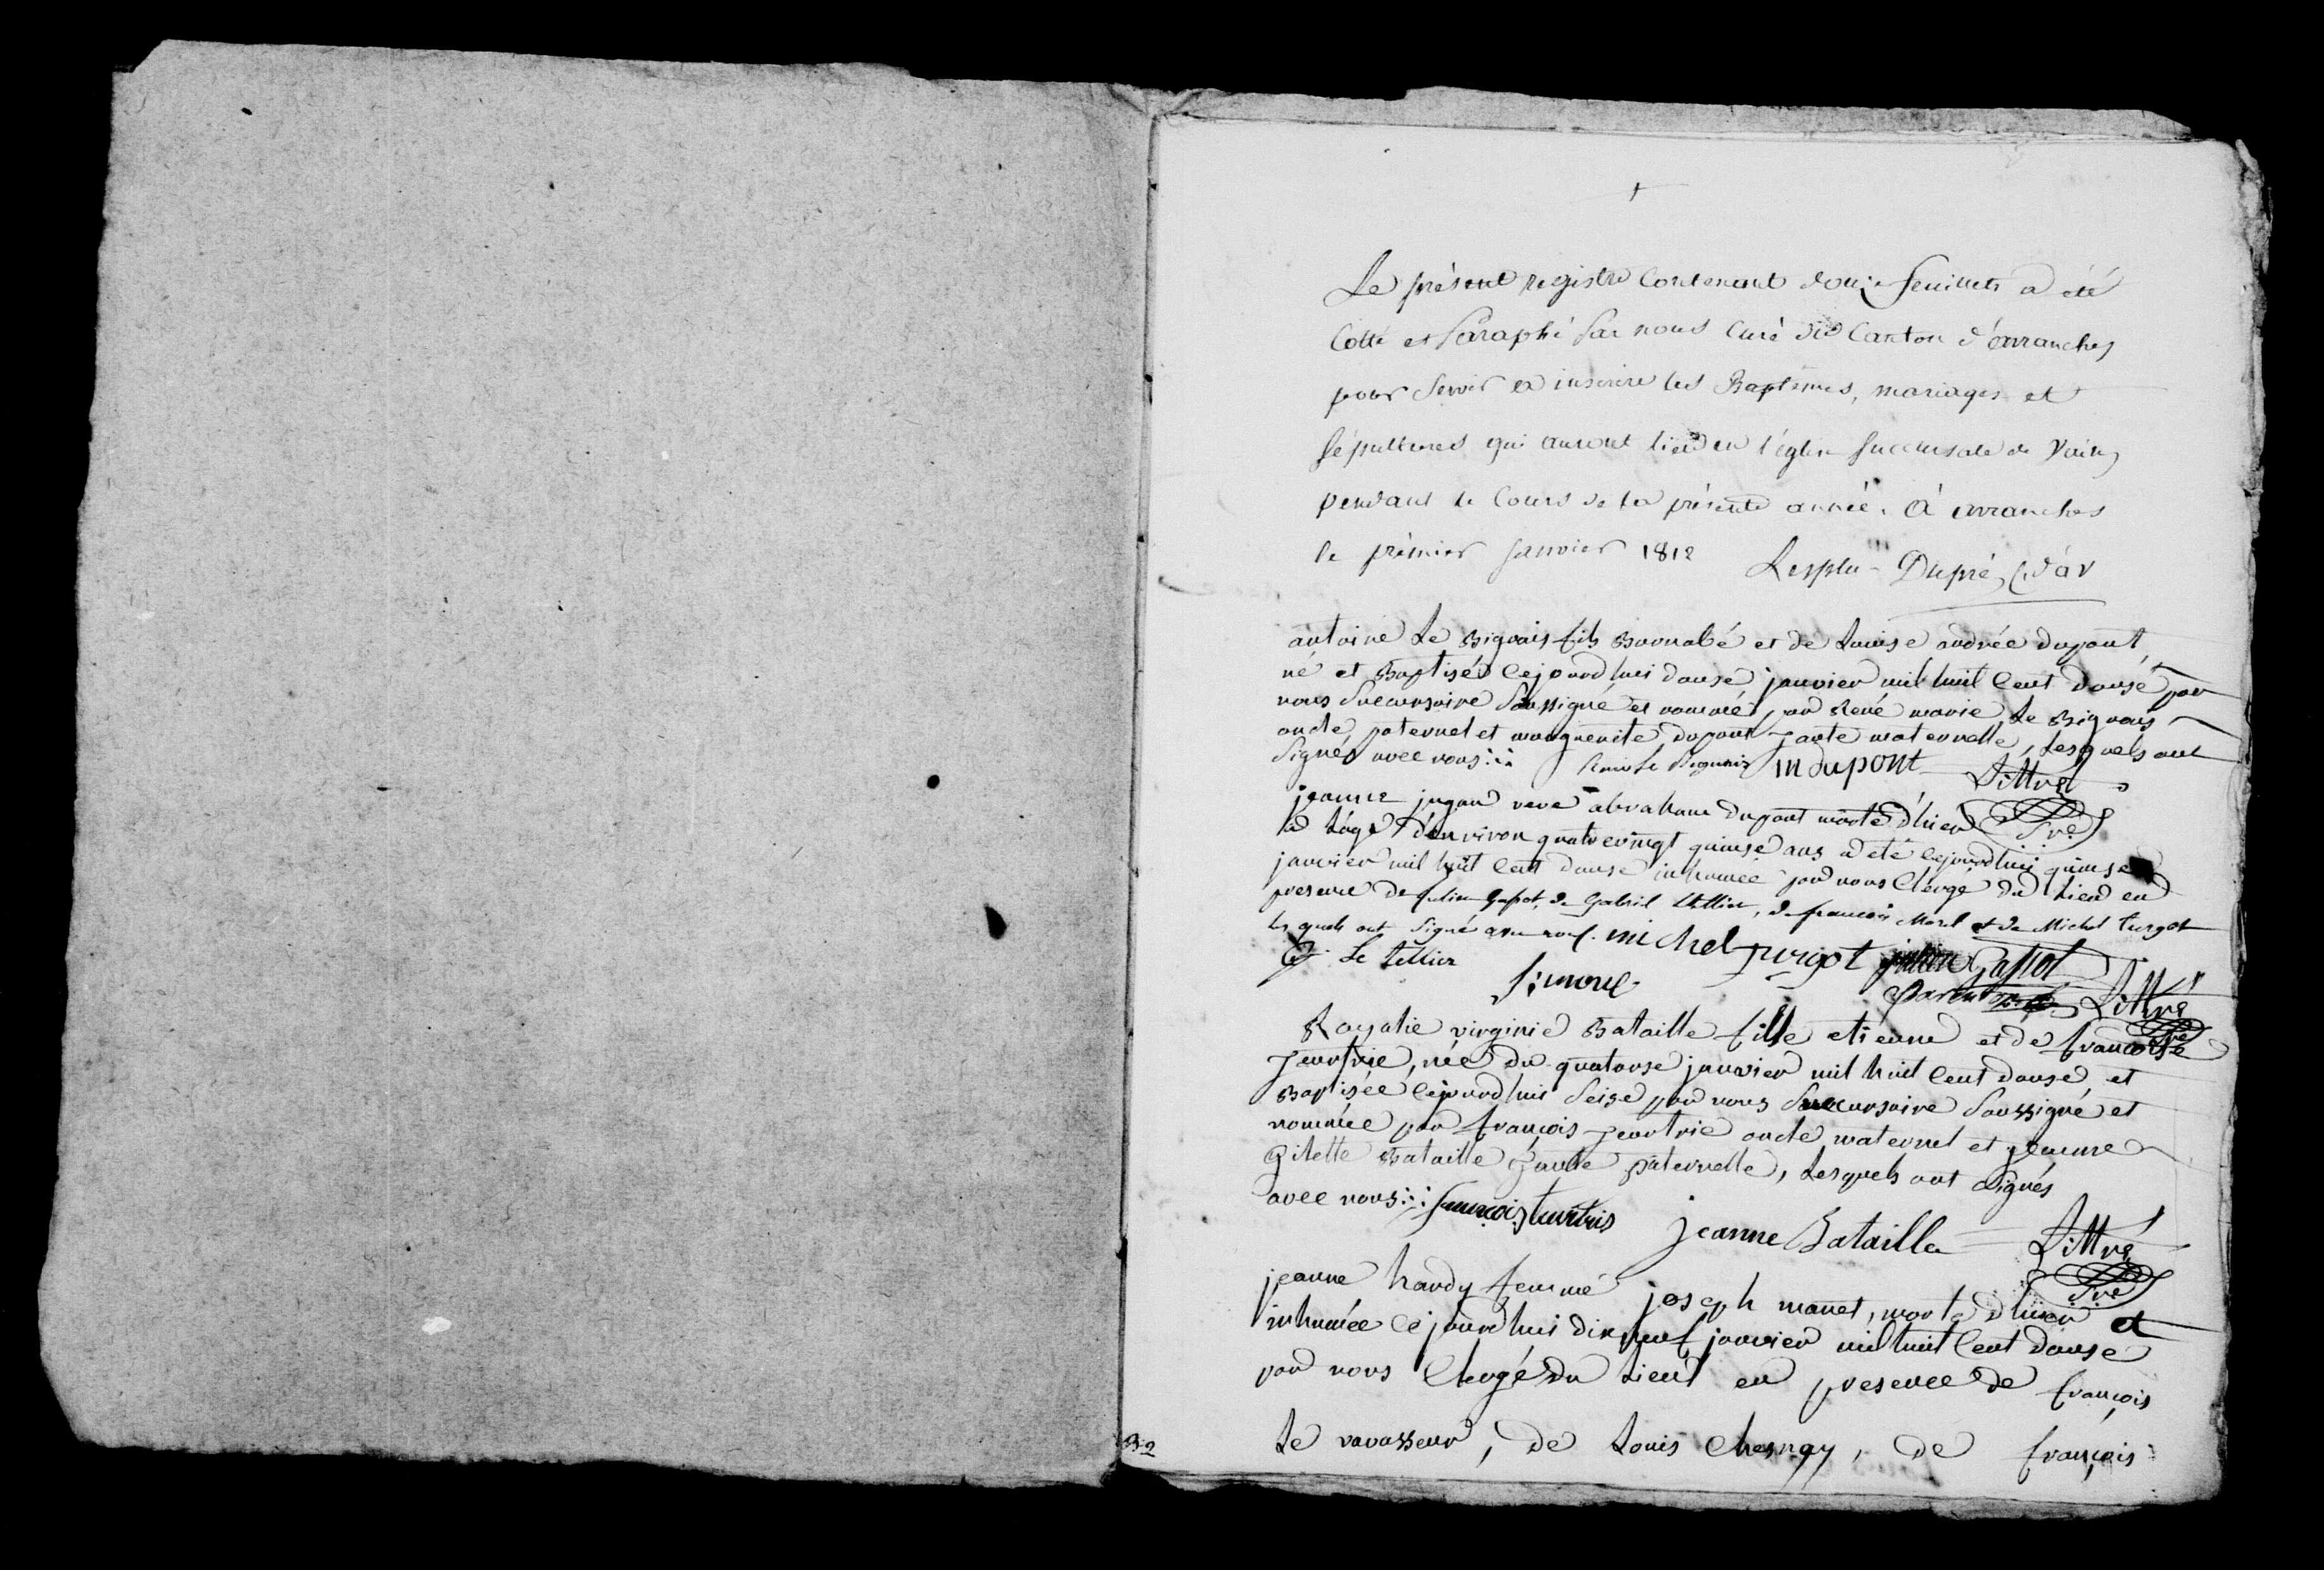 Le présent registre Contenant douze feuillets a été
Cotté et Paraphé par nous Curé du Canton d'avranches
pour Servir a inscrire les Baptêmes, mariages et
Sépultures qui auront lieu en l'église Succursale de Vains
pendant le Cours de la présente année. A avranches
le prémier Janvier 1812 Lesplu-Dupré, C. d'av
antoine Le Bignais fils Barnabé et de Louise andrée dupont,
né et Baptisé Cejourdhui douse janvier mil huit Cent douse par
nous Succursaire Soussigné et nommé par René marie Le Bignais
oncle paternel et marguerite dupont tante maternelle, Lesquels ont
Signés avec nous René Le Bignais m dupont Littré
jeanne jugan veve abraham dupont morte d'hier ptre
a Lâge d'environ quatrevingt quinse ans a eté cejourdhui quinse
janvier mil huit Cent douse inhumée par nous Chergé du Lieu en
presence de Julien Gastot, de Gabriel letellier, de francois Morel et de Michel Turgot
les quels ont Signé avec nous. michel Turgot julien Gastot
G. Le Tellier f. morel Littré
Rosalie virginie Bataille fille etienne et de francoise
Teurtrie, née du quatorse janvier mil huit Cent douse, et
Baptisée Cejourdhui Seise par nous Succursaire Soussigné et
nommée par françois Teurtrie oncle maternel et jeanne
Gilette Bataille tante paternelle, Lesquels ont Signés
avec nous francois teurtris jeanne Bataille Littré
jeanne hardy femme joseph manet, morte d'hier et ptre
inhumée Ce jourdhui dixneuf janvier mil huit Cent douse
par nous Chergé du Lieu en presence de françois
Le vavasseur, de Louis Chesnay, de françois